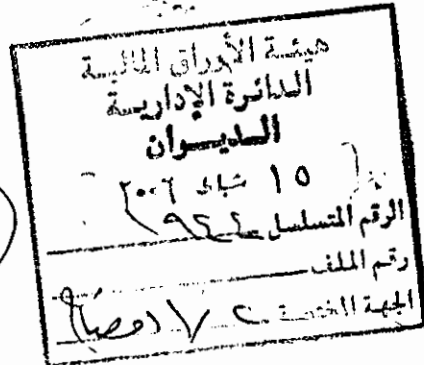 هيئة الأوراق المالية
الدائرة الإدارية
الديوان
١٥ شباط ٢٠٠٦
الرقم المتسلسل
رقم الملف
الجهة المختصة